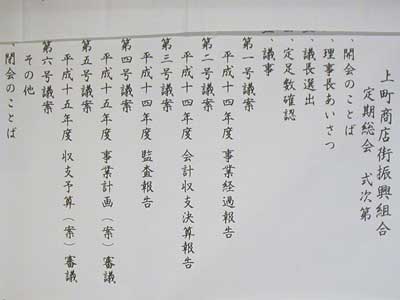 上町商店街振興組合
定期総会 式次第
、開会のことば
、理事長あいさつ
、議長選出
定足数確認
、議事
第一号議案
平成十四年度 事業経過報告
第二号議案
平成十四年度 会計収支決算報告
第三号議案
平成十四年度 監査報告
第四号議案
平成十五年度 事業計画（案）審議
第五号議案
平成十五年度 収支予算（案）審議
第六号議案
その他
、閉会のことば